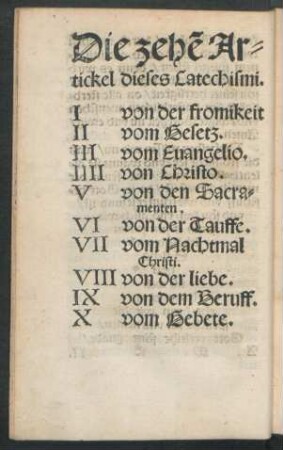 Die zehẽ Ar-
tickel dieses Catechismi.
I von der fromikeit
II vom Gesetz.
III vom Euangelio.
IIII von Christo.
V von den Sacra-
menten.
VI von der Tauffe.
VII vom Nachtmal
Christi.
VIII von der liebe.
IX von dem Beruff.
X vom Gebete.